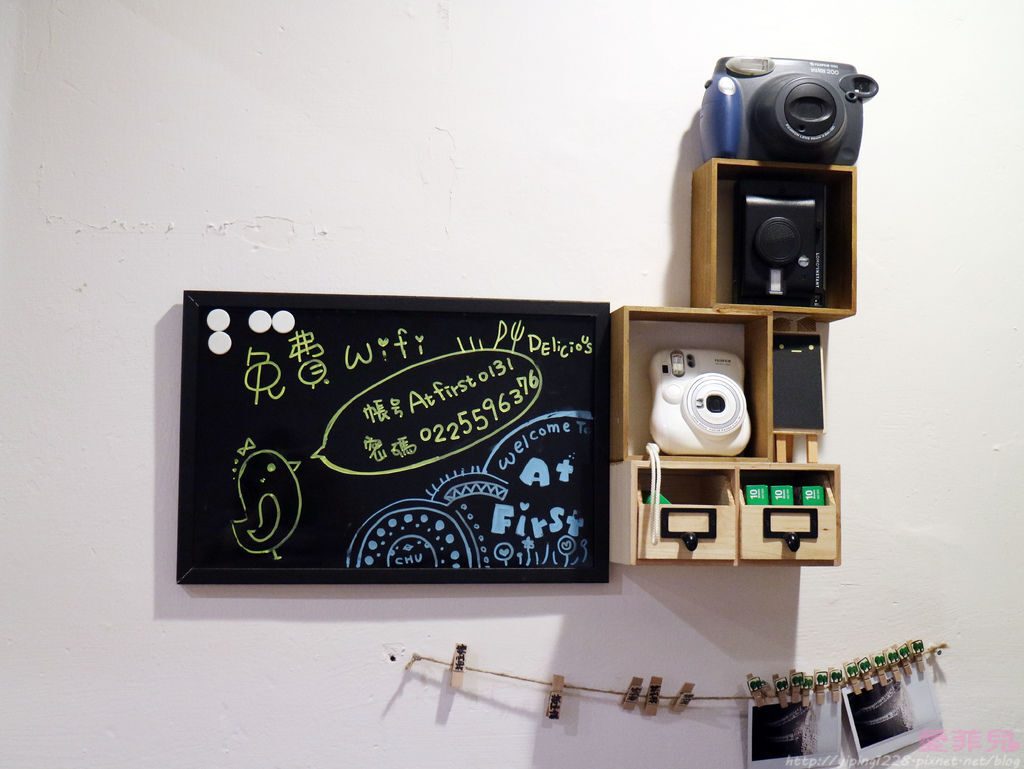 FUJIFILM
instax 200
LOMO'INSTANT
FUJIFILM
免費 Wifi
DELicioUs
帳号 Atfirst0131
密碼 0225596376
Welcome To
At
First
CHU
10
10
10
愛菲兒
http://yiping1226.pixnet.net/blog